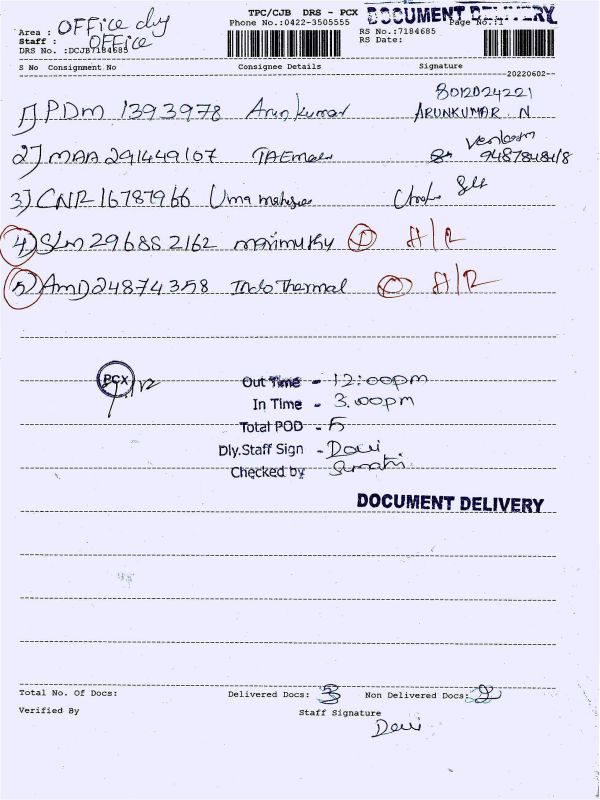 TPC/CJB DRS - PCX DOCUMENT DELIVERY
Area : OFFice dly Phone No.:0422-3505555 Page No.:1
Staff : OFFice RS No.:7184685
DRS No. :DCJB7184685 RS Date:
S No Consignment No Consignee Details Signature
20220602
8012024221
1) PDM 1393978 Arun kumar ARUNKUMAR. N
2) MAA 291449107
3) CNR 16787966 Uma Self
4) SLM 296852162 marimuthu A/R
5) AMD 24874358 Indo Thermal A/R
PCX
Out Time - 12:00pm
In Time - 3.00pm
Total POD - 5
Dly.Staff Sign - Devi
Checked by Sumathi
DOCUMENT DELIVERY
Total No. Of Docs: Delivered Docs: 3 Non Delivered Docs: 2
Verified By Staff Signature
Devi